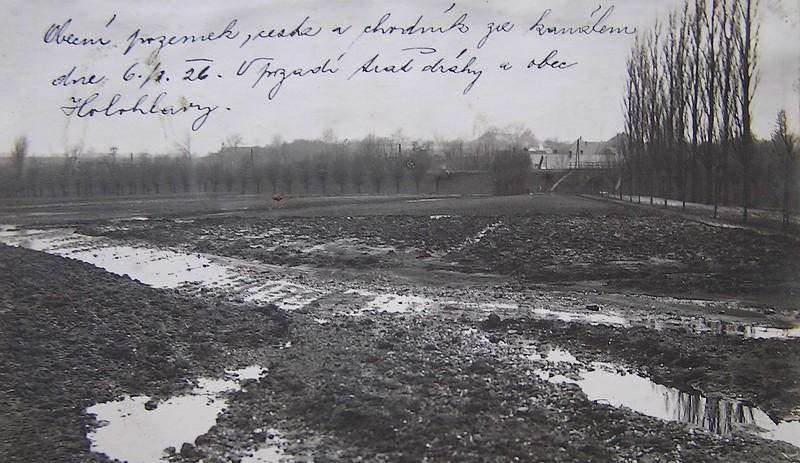 Obecní pozemek, cesta a chodník za kanálem
dne 6./2. 26. V pozadí trať dráhy a obec
Holohlavy.